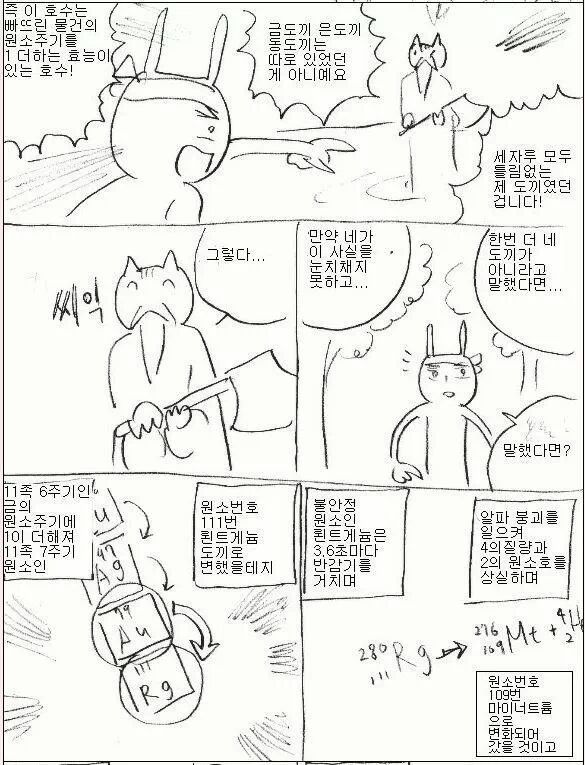 즉 이 호수는
빠뜨린 물건의
원소주기를
1 더하는 효능이
있는 호수!
금도끼 은도끼
동도끼는
따로 있었던
게 아니예요
세자루 모두
틀림없는
제 도끼였던
겁니다!
그렇다...
씨익
만약 네가
이 사실을
눈치채지
못하고...
한번 더 네
도끼가
아니라고
말했다면...
말했다면?
11족 6주기인
금의
원소주기에
1이 더해져
11족 7주기
원소인
원소번호
111번
뢴트게늄
도끼로
변했을테지
47
Ag
79
Au
111
Rg
불안정
원소인
뢴트게늄은
3.6초마다
반감기를
거치며
알파 붕괴를
일으켜
4의질량과
2의 원소호를
상실하며
280 111 Rg → 276 109 Mt + 4 2 He
원소번호
109번
마이너트륨
으로
변화되어
갔을 것이고